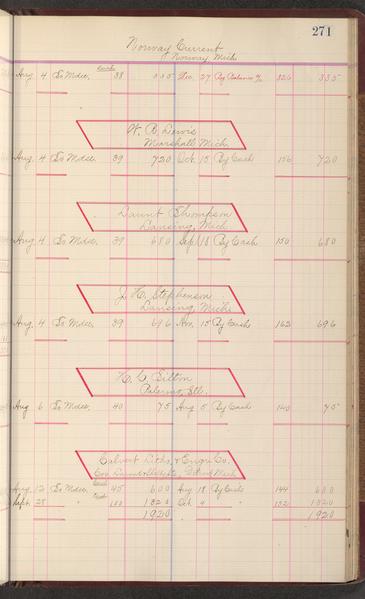 271
Norway Current
Norway, Mich.
Aug. 4 To Mdse, 38 335 Dec. 27 By Balance % 326 335
W. B. Lewis
Marshall Mich.
Aug. 4 To Mdse. 39 720 Oct. 15 By Cash 156 720
Daunt Thompson
Lansing, Mich.
Aug. 4 To Mdse, 39 680 Sept. 18 By Cash 150 680
J. H. Stephenson
Lansing, Mich.
Aug. 4 To Mdse, 39 696 Nov. 15 By Cash 162 696
H. C. Silton
Palermo, Ills.
Aug 6 To Mdse, 40 75 Aug 5 By Cash 140 75
Calvert Litho. & Engr. Co.
Detroit Mich.
Aug. 12 To Mdse, 45 600 Aug 18 By Cash 144 600
Sept. 28 " 100 1320 Oct. 4 " 152 1320
1920 1920